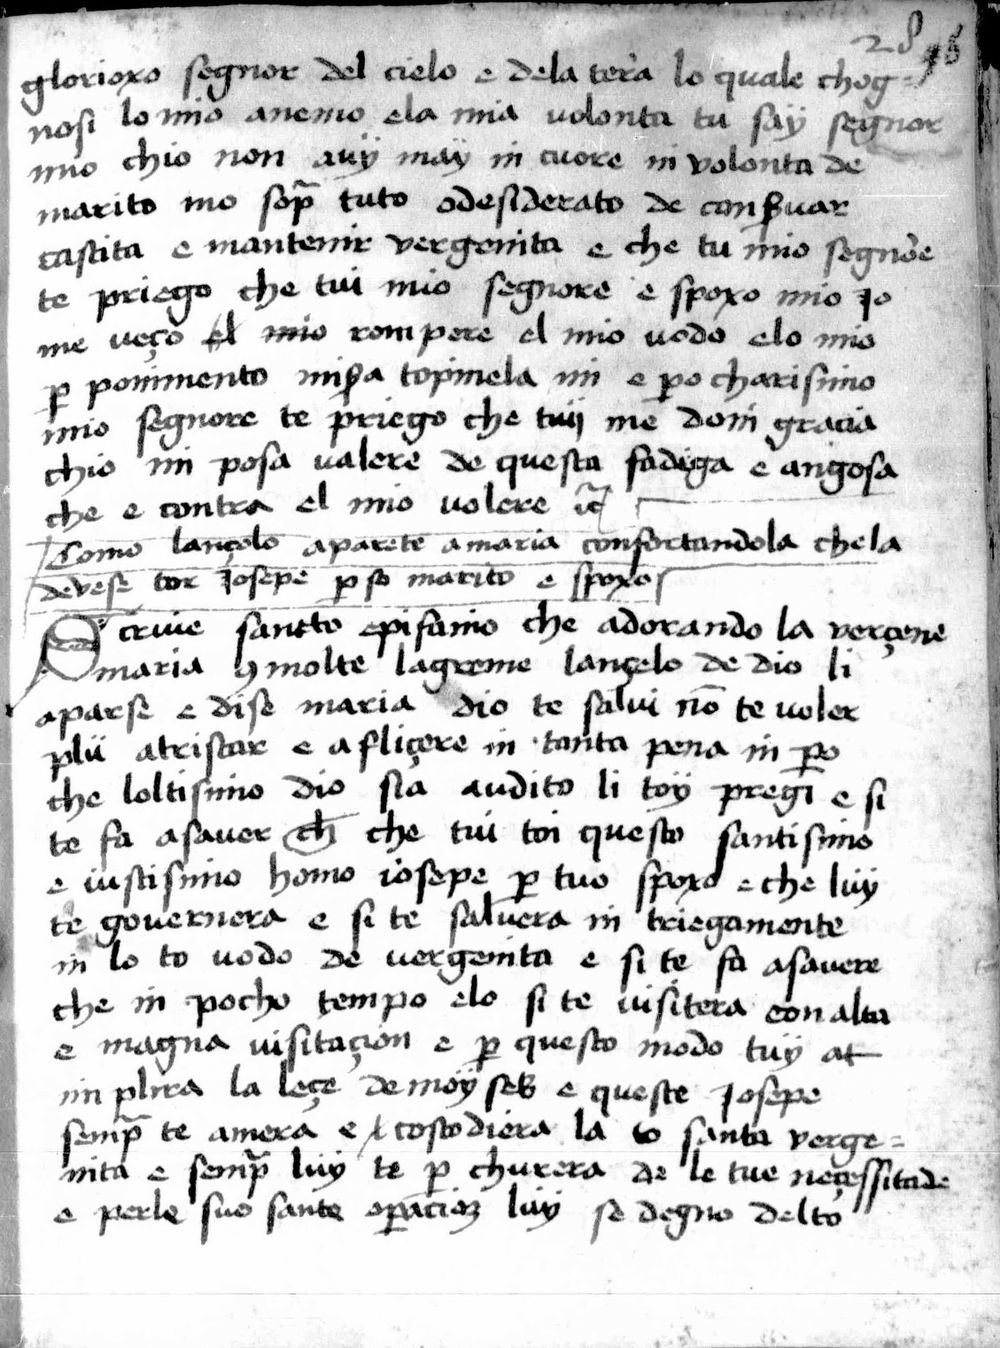 28
glorioxo segnor del cielo e dela tera lo quale chog=
nosi lo mio anemo ela mia volonta tu say segnor
mio chio non avÿ maÿ in cuore ni volonta de
marito mo sop̃ tuto odesiderato de conꝑvar
castita e mantenir vergenita e che tu mio segnore
te priego che tui mio segnore e spoxo mio Jo
me veço el mio rompere el mio vodo elo mio
ꝓ ponimento misa topinela mi e ꝑo charisimo
mio segnore te priego che tuÿ me doni gracia
chio mi posa valere de questa fadiga e angosa
che e contra el mio volere
Como lançolo aparete a maria confortandola chela
devese tor Josepe ꝑ so marito e spoxo
Scrive santto epifanio che adorando la verçene
maria ꝯ molte lagreme lançelo de dio li
aparse e dise maria dio te salvi nō te voler
plü atristar e afliçere in tanta pena in ꝑo
che loltisimo dio sia audito li toÿ pregi e si
te fa asaver ch che tui toi questo santisimo
e iustisimo homo iosepe ꝑ tuo spoxo e che luÿ
te governera e si te salvera in triegamente
in lo to vodo de vergenita e si te fa asavere
che in pocho tempo elo si te visitera con alta
e magna visitaçion e ꝑ questo modo tuÿ at
inplira la leçe de moÿses e queste Josepe
semp̃ te amera e costodiera la to santa verge=
nita e semp̃ luÿ te ꝓ churera de le tue neçessitade
e perle suo sante oꝑacioꝫ luÿ se degno delto